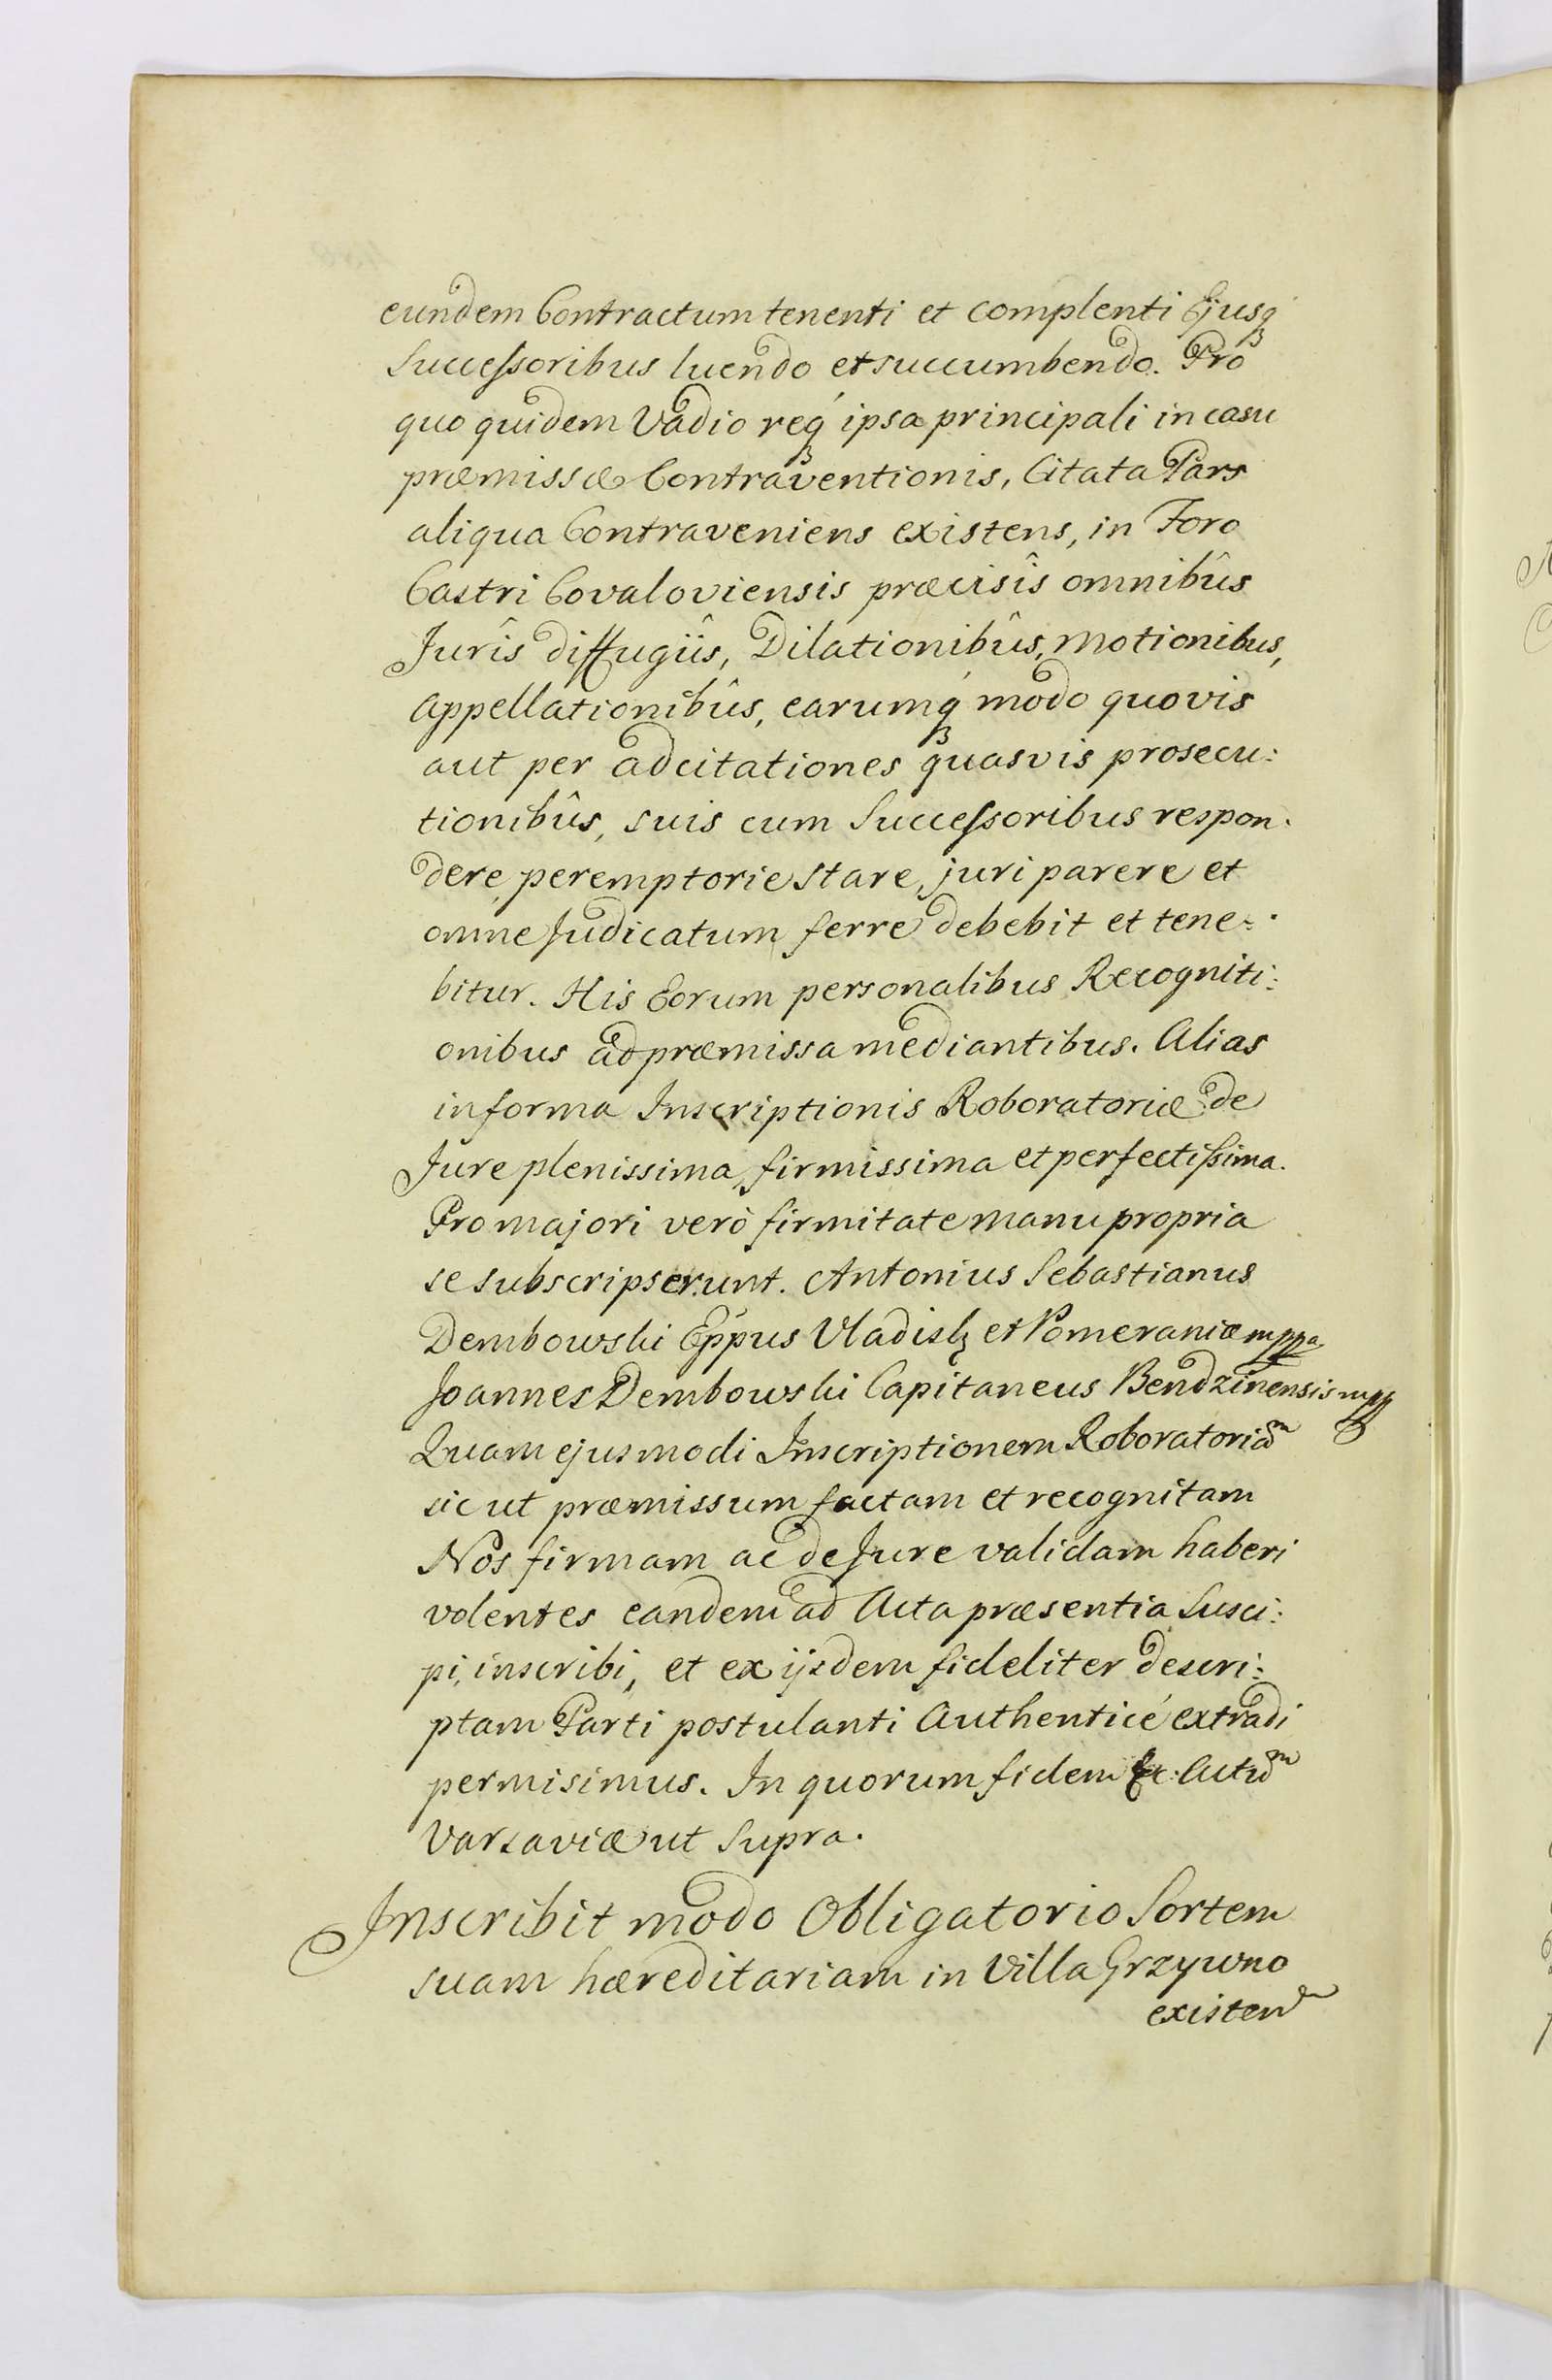 eundem Contractum tenenti et complenti Ejusq́ʒ
Successoribus luendo et succumbendo. Pro
quo quidem Vadio req́ʒ ipsa principali in casu
præmissæ Contraventionis, Citata Pars
aliqua Contraveniens existens, in Foro
Castri Covaloviensis præcisîs omnibûs
Jurîs diffugiîs, Dilationibûs, Motionibus,
Appellationibûs, earumq́ʒ modo quovis
aut per adcitationes quasvis prosecu:
tionibûs, suis cum Successoribus respon:
dere, peremptorie stare, juri parere et
omne Judicatum ferre debebit et tene:
bitur. His Eorum personalibus Recogniti:
onibus ad præmissa mediantibus. Alias
in forma Inscriptionis Roboratoriæ de
Jure plenissima, firmissima et perfectissima.
Pro majori verò firmitate manu propria
se subscripserunt. Antonius Sebastianus
Dembowski Eppus Vladislʒ et Pomeraniæ mppa
Joannes Dembowski Capitaneus Bendzinensis mpp
Quam ejusmodi Inscriptionem Roboratoriam
sic ut præmissum factam et recognitam
Nos firmam ac de Jure validam haberi
volentes eandem ad Acta præsentia Susci:
pi, inscribi, et ex iisdem fideliter descri:
ptam Parti postulanti Authenticé extradi
permisimus. In quorum fidem &c: Actum
Varsaviæ ut Supra.
Inscribit modo Obligatorio Sortem
suam hæreditariam in Villa Grzywno
existen